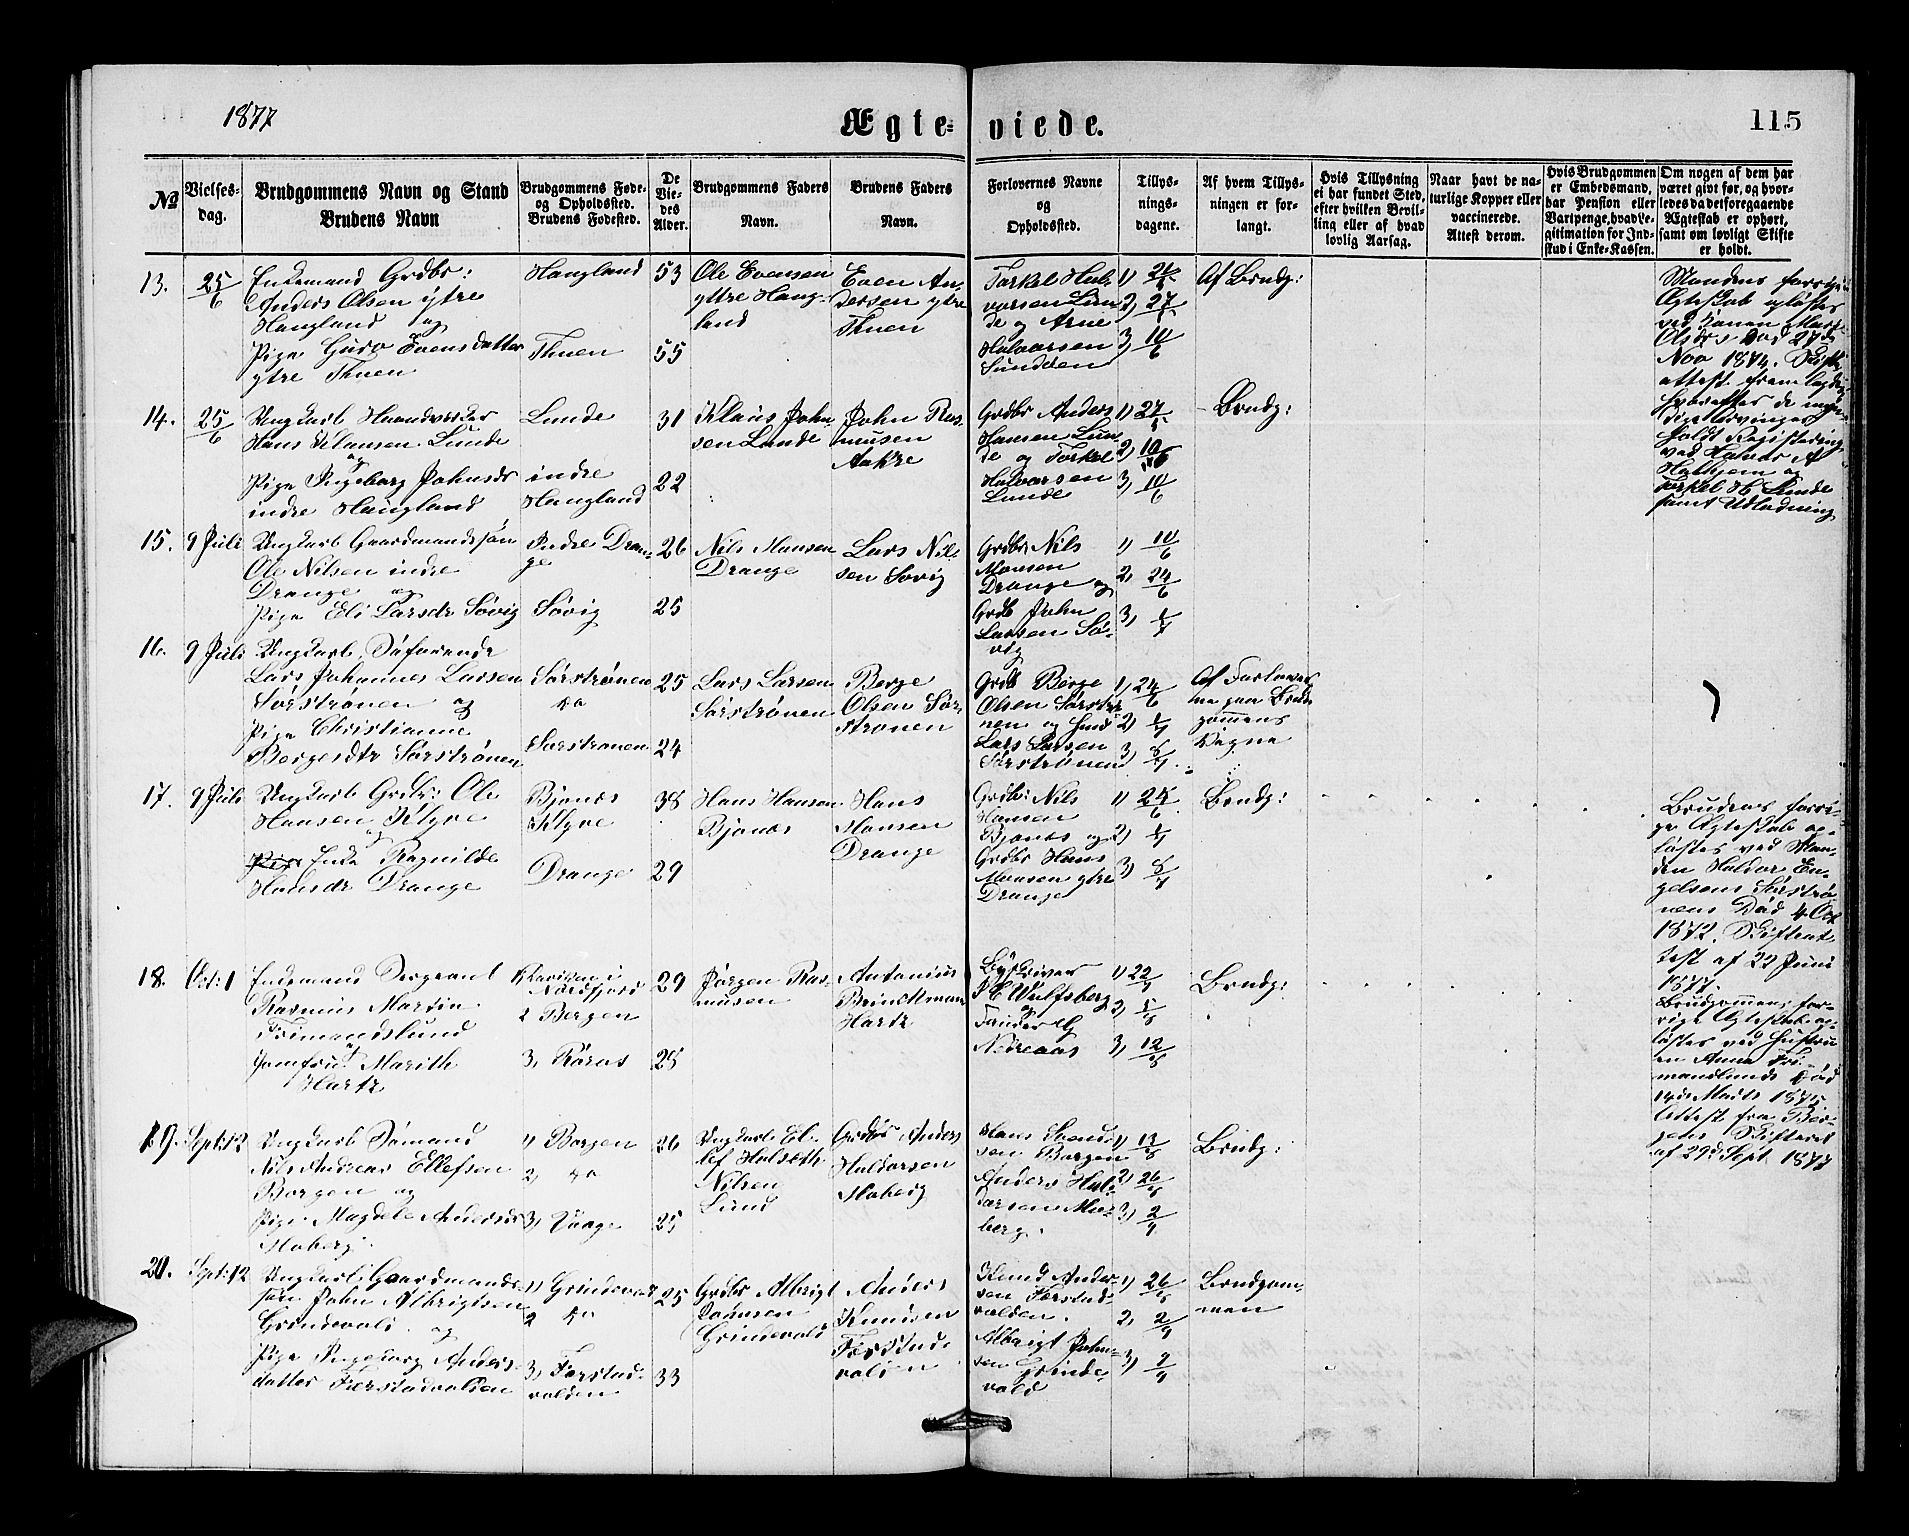 1877
Ægte-viede.
115
No
Vielses-dag.
Brudgommens Navn og Stand
Brudens Navn
Brudgommens Føde- og Opholdssted.
Brudens Fødested.
De Vie-des Alder.
Brudgommens Faders Navn.
Brudens Faders Navn.
Forlovernes Navne og Opholdssted.
Tillys-nings-dagene.
Af hvem Tillys-ningen er for-langt.
Hvis Tillysning ei har fundet Sted, efter hvilken Bevil-ling eller af hvad lovlig Aarsag.
Naar havt de na-turlige Kopper eller vaccinerede. Attest derom.
Hvis Brudgommen er Embedsmand, har Pension eller Vartpenge, hvad Le-gitimation for Ind-skud i Enke-Kassen.
Om nogen af dem har været givt før, og hvor-ledes da det foregaaende Ægteskab er ophørt, samt om lovligt Skifte er holdt.
13.
25/6
Enkemand Grdbr:
Anders Olsen ytre
Hangland og
Pige Guro Evensdatter
ytre Thuen
Hangland
Thuen
53
55
Ole Evensen
yttre Hang-
land
Even An-
dersen ytre
Thuen
Torkel Hal-
vorsen Lun-
de og Arne
Halvorsen
Sundden
3) 10/6
Af Brudg:
Mandens forrige
Ægteskab opløstes
ved Konen
Olsdrs Død 27de
Nov 1874.
14.
25/6
Ungkarl Haandverker
Hans Klausen Lunde
og
Pige Ingeborg Johnsdr
indre Hangland
Lunde
indre
Hangland
31
22
Klaus John-
sen Lunde
John Ras-
musen
Aakre
Grdbr Anders
Hansen Lun-
de og Torkel
Halvorsen
Lunde
3) 10/6
Brudg:
ved Halvor A
Hatbjem og
Torkel H Lunde
samt Udlodning
15.
9 Juli
Ungkarl Gaardmandssøn
Ole Nilsen indre
Drange og
Pige Eli Larsdr Søvig
Indre Dran-
ge
Søvig
26
25
Nils Monsen
Drange
Lars Nil-
sen Søvig
Grdbr Nils
Monsen
Drange og
Grdb John
Larsen Sø-
vig
1) 10/6
2, 24/6
3) 1/7
16.
9 Juli
Ungkarl, Søfarende
Lars Johannes Larsen
Sørstrønen og
Pige Christianne
Bergesdtr Sørstrønen
Sørstrønen
do
Sørstrønen
25
24
Lars Larsen
Sørstrønen
Berge
Olsen Sør-
strønen
Grdb Berge
Olsen Sørstrø-
nen og
Lars Larsen
Sørstrønen
1) 24/6
2) 1/7
3, 8/7
Af Forlover-
ne paa Brud-
gommens
Vegne
17.
9 Juli
Ungkarl Grdbr: Ole
Hansen Klyve
og
Enke Ragnilde
Hansdr Drange
Bjønes
Klyve
Drange
38
29
Hans Hansen
Bjønes
Hans
Monsen
Drange
Grdbr: Nils
Hansen
Bjønes og
Grdbr Hans
Monsen ytre
Drange
2) 1/7
3) 8/7
Brudg:
Brudens forri-
ge Ægteskab op-
løstes ved Man-
den Haldor En-
gelsens Sørstrø-
nens Død 4 Oct
1872. Skifteat-
test af 22 Juni
1877.
18.
Oct: 1
Enkemand Sergeant
Rasmus Martin
Frimandslund
og
Jomfru Marith
Hartz
Nordfjord
2 Bergen
3, Røros
29
25
Jørgen Ras-
musen
Antonius
Brinkmann
Hartz
Byskriver
J C Wulfsberg
og
Nedreaas
3, 12/8
Brudg:
Brudgommens for-
rige Ægteskab op-
løstes ved Hustru-
en Anna Fri-
mandslunds Død
14de Marts 1875
Attest fra Ber-
gens Skifteret
af 29de Sept 1877
19.
Sept: 12
Ungkarl Sømand
Nils Andreas Ellefsen
Borgen og
Pige Magdele Andersdr
Moberg
1) Borgen
2, do
3, Vaage
26
25
Ungkarl El-
lef Halseth
Nilsen
Lund
Grdbr Anders
Haldorsen
Moberg
Hans Svend-
sen Borgen
Anders Hal-
dorsen Mo-
berg.
2) 26/8
3) 2/9
Brudg:
20.
Sept: 12
Ungkarl Gaardmands-
søn John Albrigtsen
Grindevold og
Pige Ingeborg Anders-
datter Færstadvolden
1) Grindevold
2 do
3, Færstad-
volden
25
33
Grdbr Albrigt
Johnsen
Grindevold
Anders
Knudsen
Færstad-
volden
Knud Ander-
sen Færstad-
volden.
Albrigt John-
sen Grinde-
vold
1) 26/8
2, 2/9
3) 9/9
Brudgom-
men